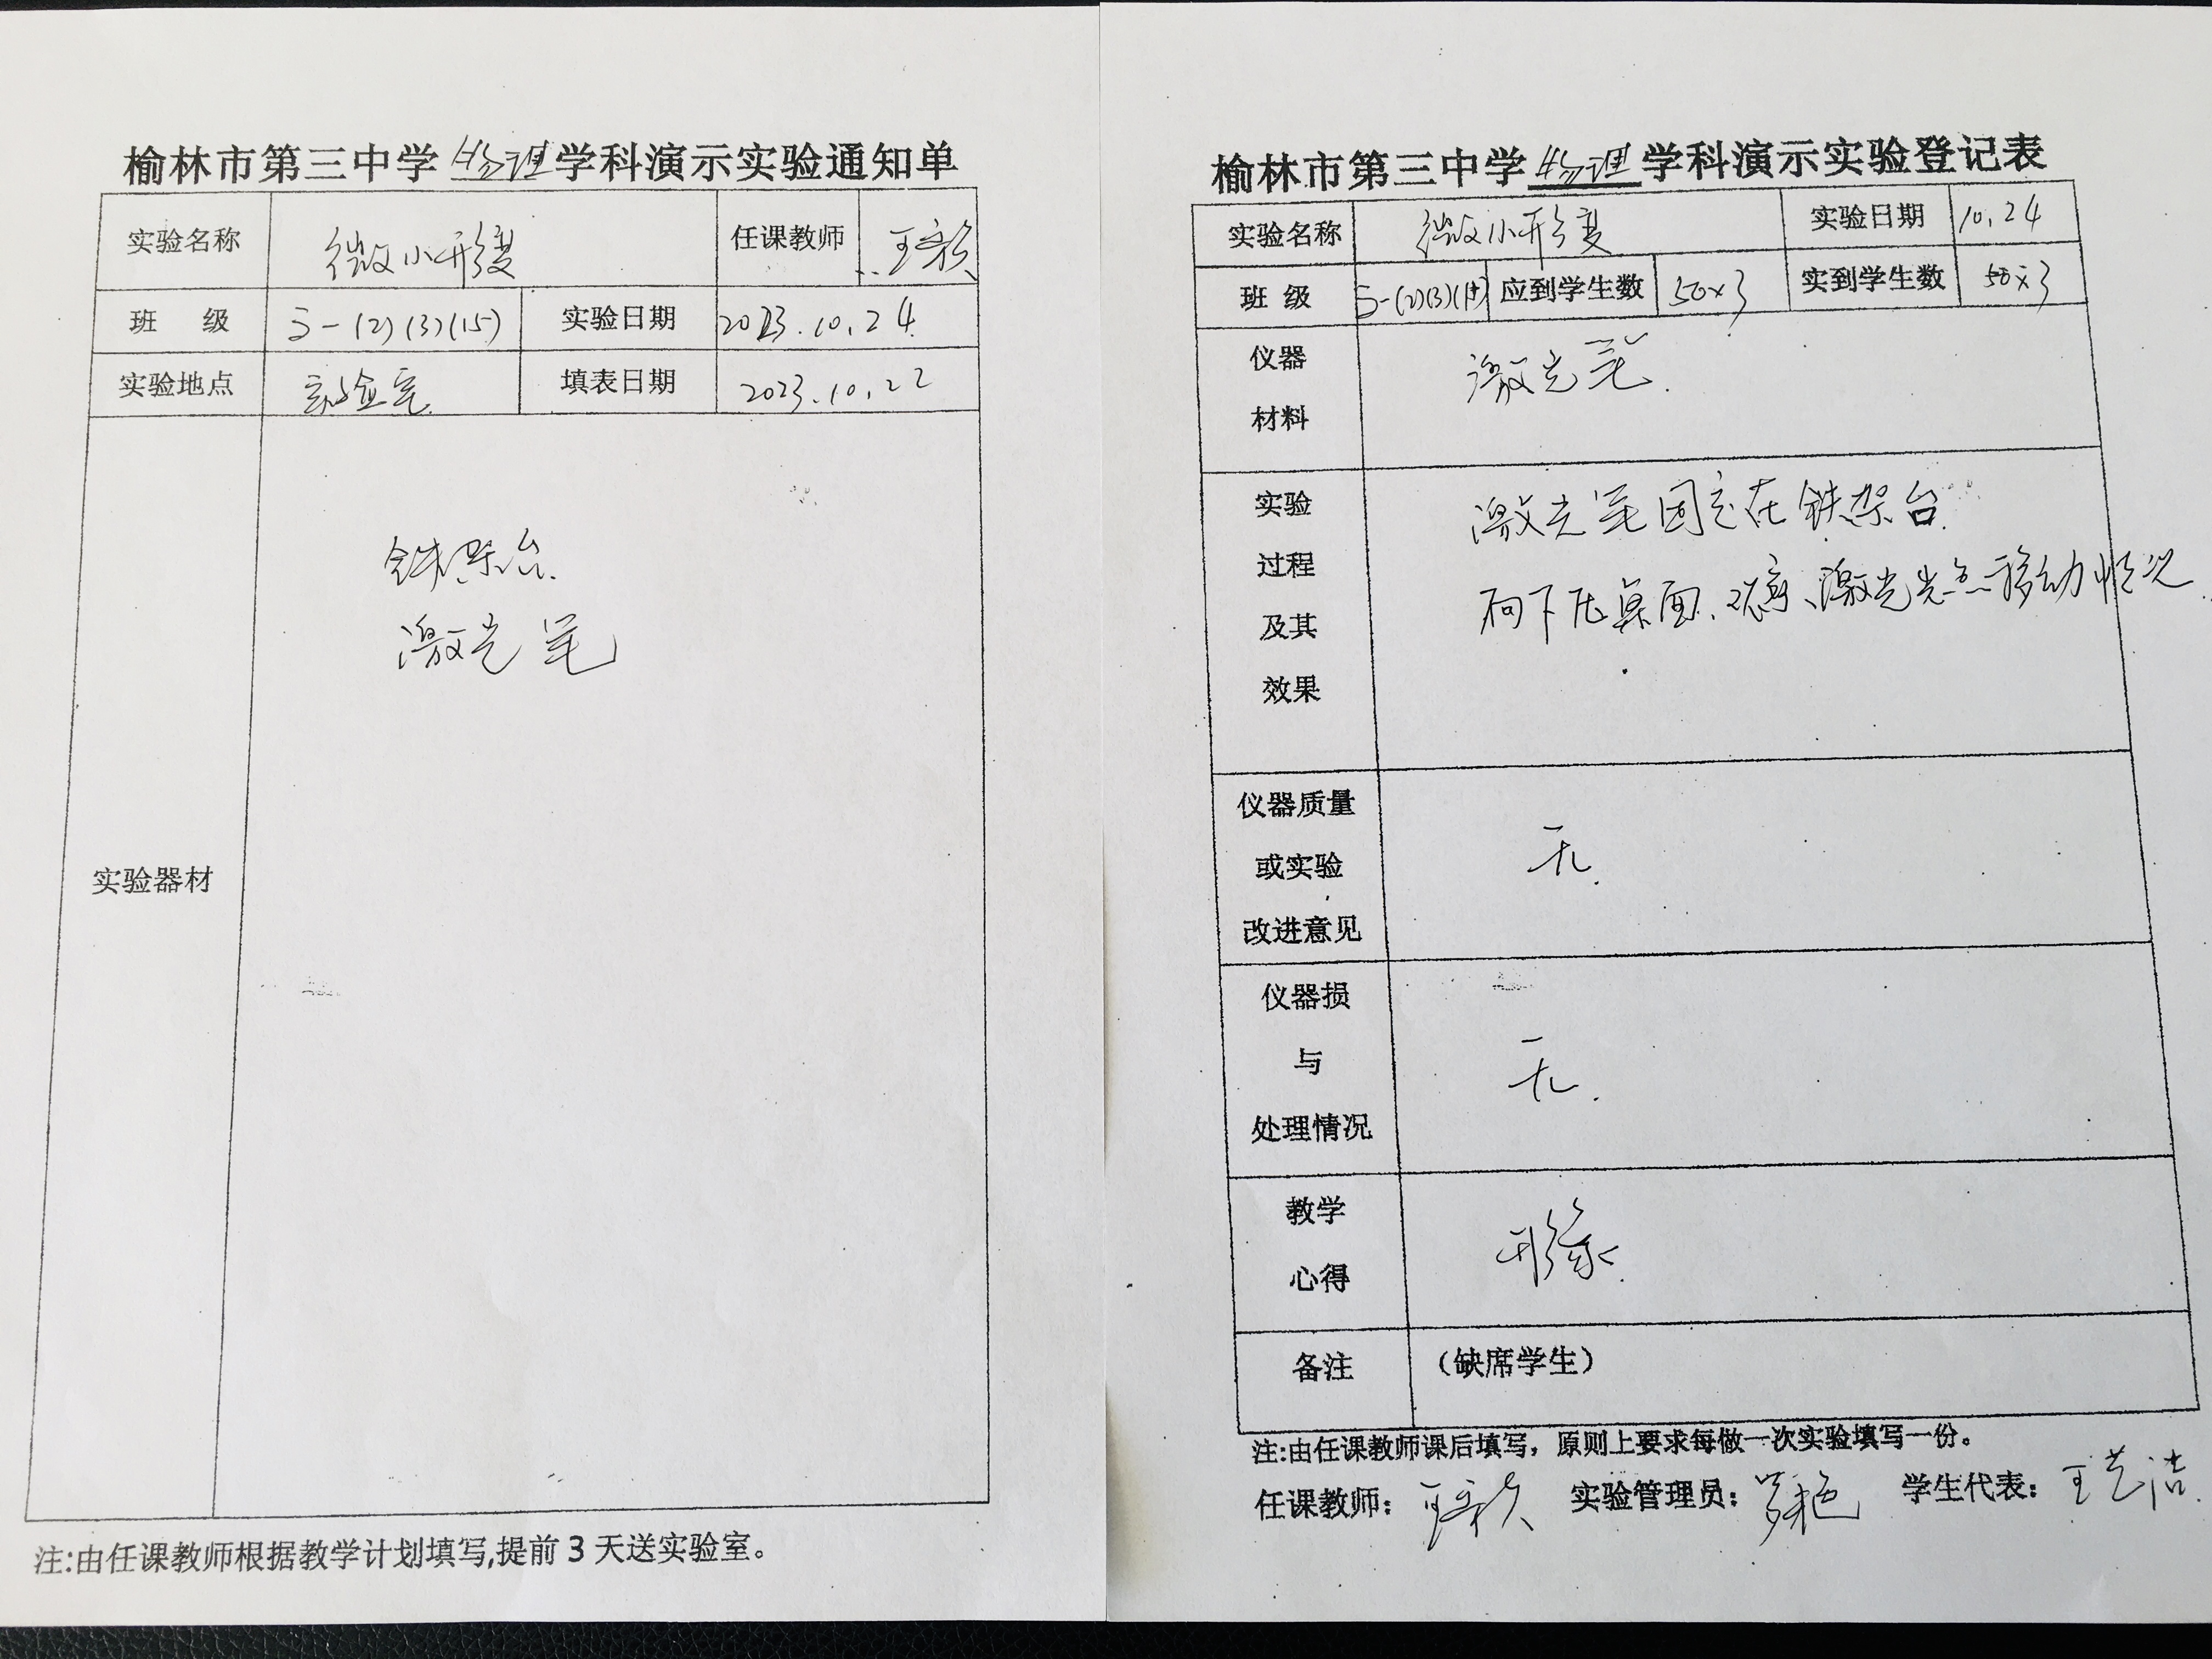 榆林市第三中学物理学科演示实验通知单
实验名称 微小形变 任课教师
班 级 高一(2)(3)(15) 实验日期 2023.10.24
实验地点 实验室 填表日期 2023.10.22
实验器材
铁架台.
激光笔
注:由任课教师根据教学计划填写,提前3天送实验室。
榆林市第三中学物理学科演示实验登记表
实验名称 微小形变 实验日期 10.24
班 级 高一(2)(3)(15) 应到学生数 50×3 实到学生数 50×3
仪器
材料
激光笔.
实验
过程
及其
效果
激光笔固定在铁架台.
向下压桌面、观察、激光光点移动情况.
仪器质量
或实验
改进意见
无.
仪器损
与
处理情况
无.
教学
心得
形象.
备注 (缺席学生)
注:由任课教师课后填写,原则上要求每做一次实验填写一份。
任课教师: 实验管理员: 学生代表: 王艺洁.